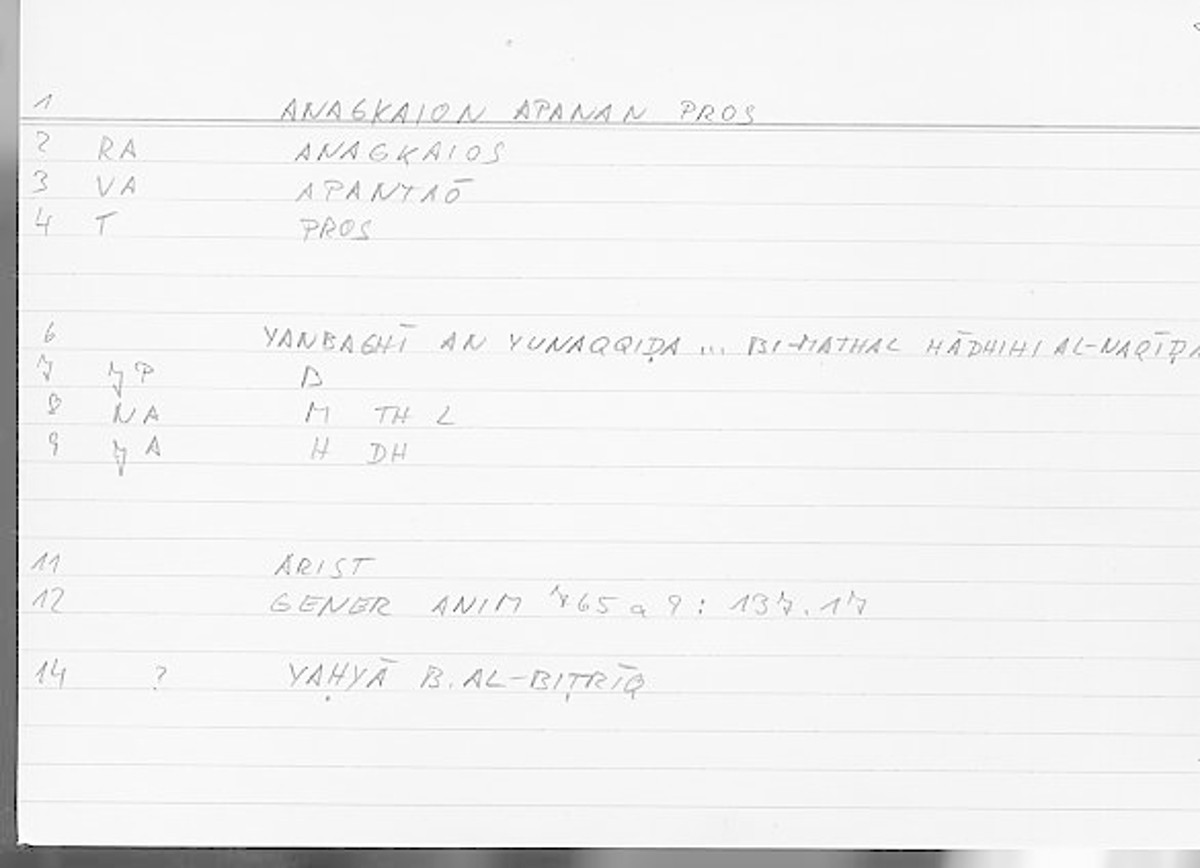 1 ANAGKAION APANAN PROS
2 RA ANAGKAIOS
3 VA APANTAŌ
4 T PROS
6 YANBAGHĪ AN YUNAQQIḌA ... BI-MATHAL HĀDHIHI AL-NAQĪḌA
7 7P B
8 NA M TH L
9 7A H DH
11 ARIST
12 GENER ANIM 765 a 9 : 137.17
14 ? YAḤYĀ B. AL-BIṬRĪQ